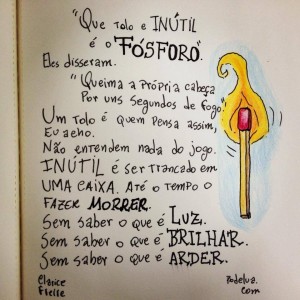 "Que tolo e INÚTIL
é o FÓSFORO".
Eles disseram.
"Queima a própria cabeça
Por uns segundos de fogo."
Um tolo é quem pensa assim,
Eu acho.
Não entendem nada do jogo.
INÚTIL é ser trancado em
UMA CAIXA. Até o tempo o
FAZER MORRER.
Sem saber o que é LUZ.
Sem saber o que é BRILHAR.
Sem saber o que é ARDER.
Clarice
Freire
Podelua.
com